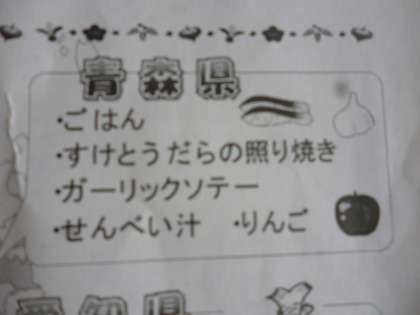 青森県
・ごはん
・すけとうだらの照り焼き
・ガーリックソテー
・せんべい汁　・りんご
愛知県